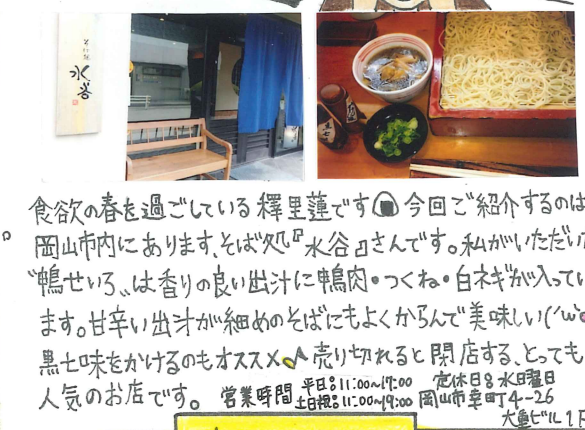 そば処
水谷
食欲の春を過ごしている釋里蓮です 今回ご紹介するのは
岡山市内にあります、そば処『水谷』さんです。私がいただい
〝鴨せいろ〟は香りの良い出汁に鴨肉・つくね・白ネギが入ってい
ます。甘辛い出汁が細めのそばにもよくからんで美味しい(^ω^
黒七味をかけるのもオススメ♪売り切れると閉店する、とっても
人気のお店です。
営業時間 平日:11:00~17:00
土日祝:11:00~19:00
定休日:水曜日
岡山市幸町4-26
大亀ビル1F